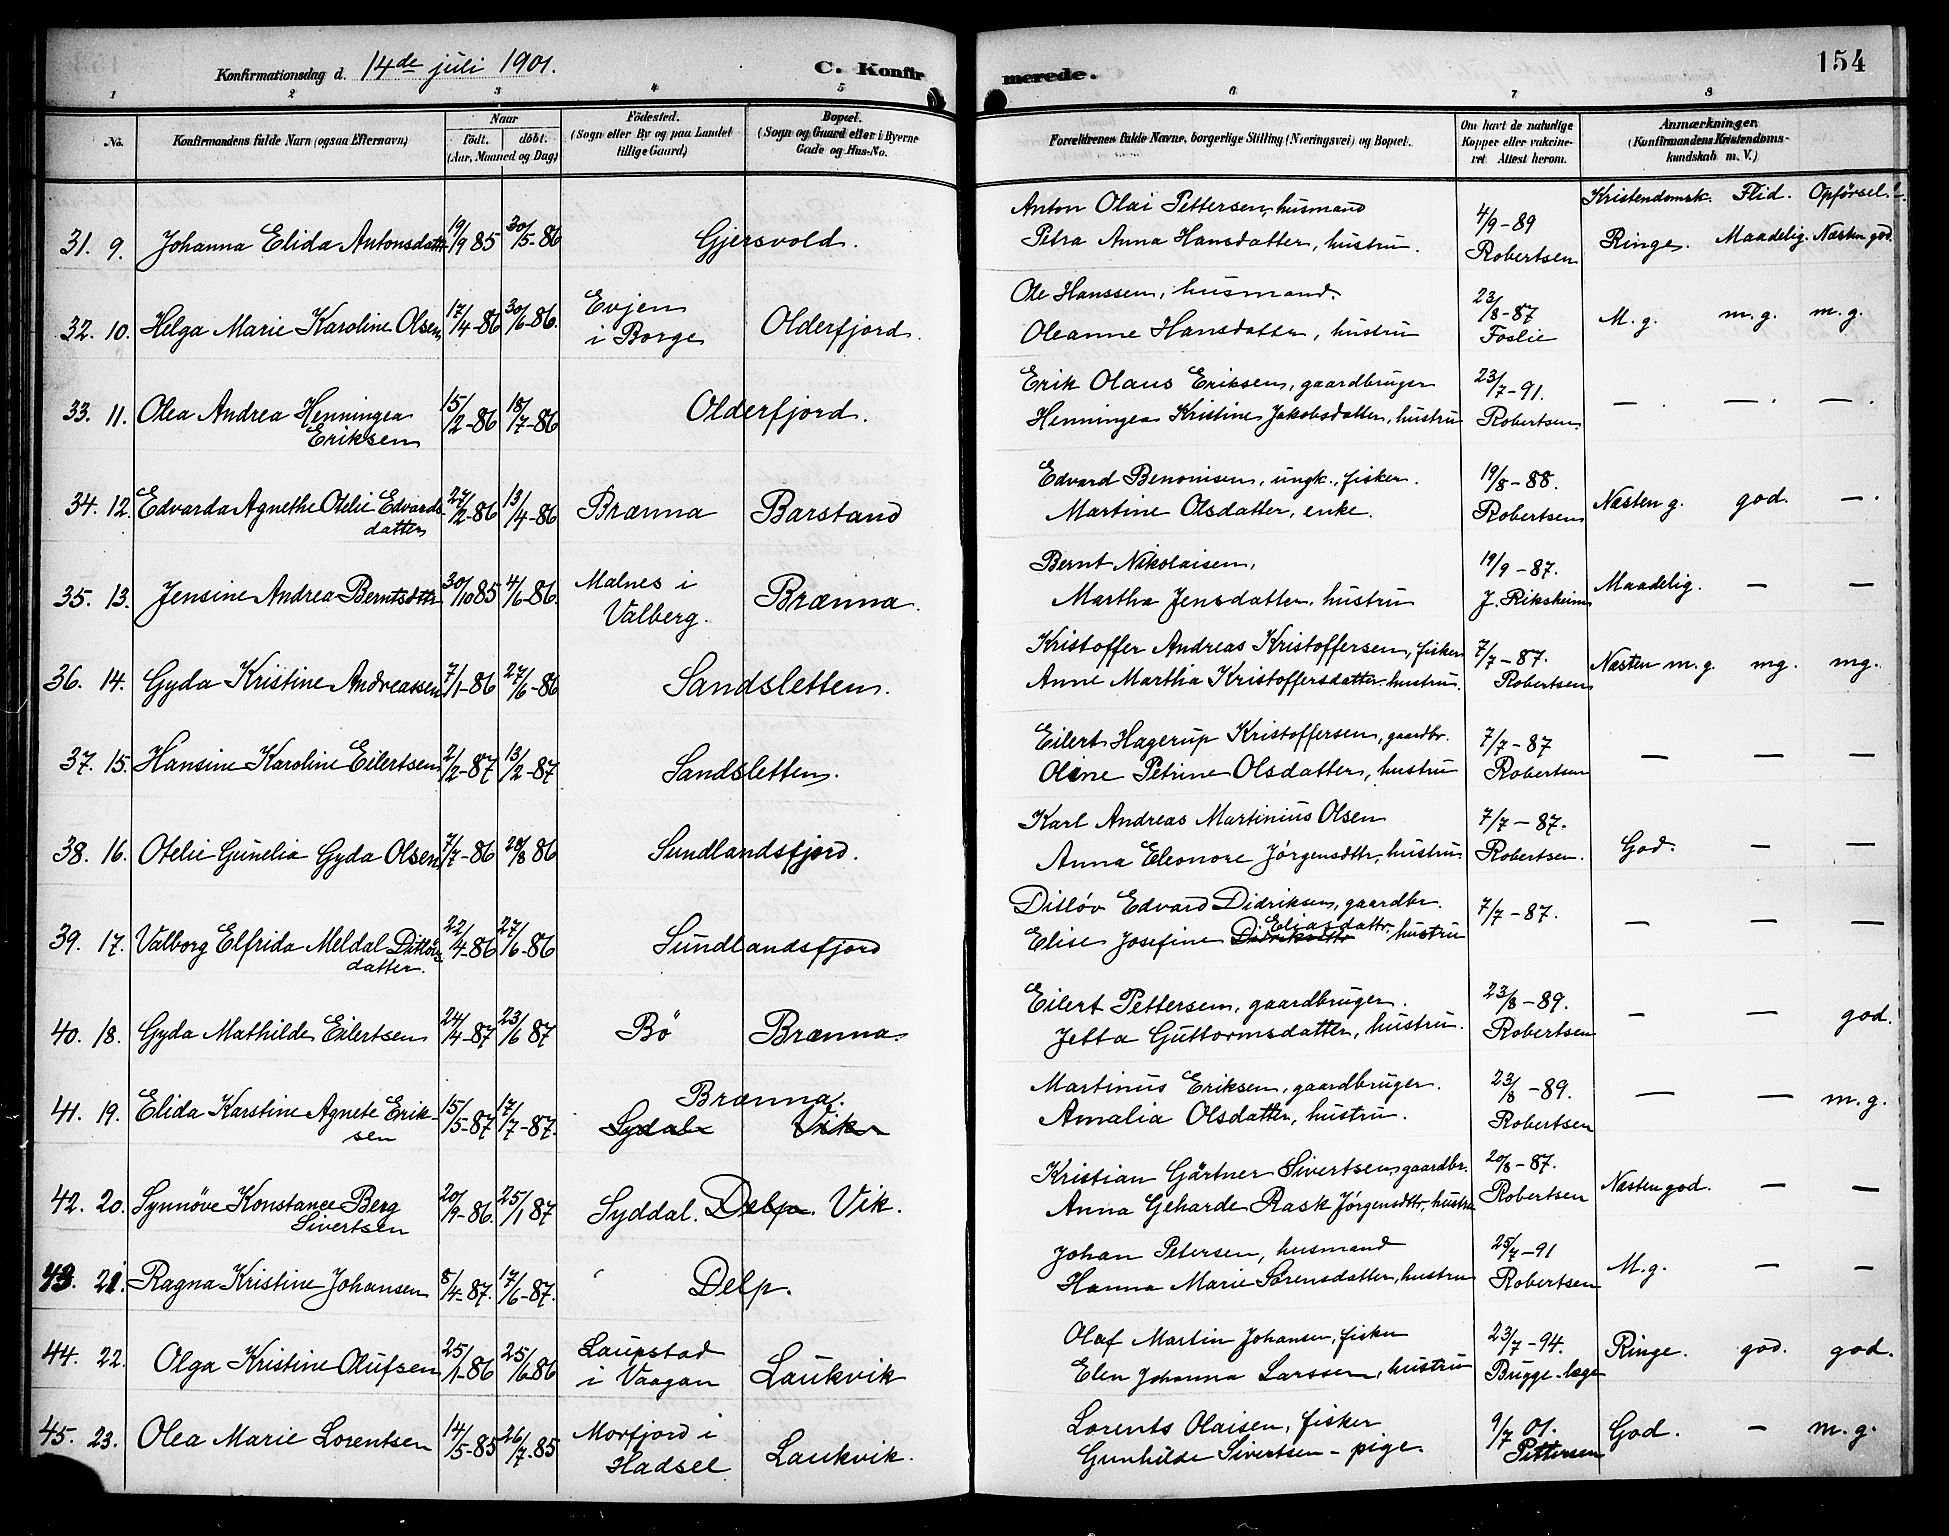 Konfirmationsdag d. 14de juli 1901.
C. Konfirmerede.
154
1 2 3 4 5 6 7 8
No.
Konfirmandens fulde Navn (ogsaa Efternavn)
Naar
födt. döbt.
(Aar, Maaned og Dag)
Födested.
(Sogn eller By og paa Landet
tillige Gaard)
Bopæl.
(Sogn og Gaard eller i Byerne
Gade og Hus-No.
Forældrenes fulde Navne, borgerlige Stilling (Næringsvei) og Bopæl.
Om havt de naturlige
Kopper eller vakcine-
ret Attest herom.
Anmærkninger.
(Konfirmandens Kristendoms-
kundskab m. V.)
Kristendomsk. Flid. Opførsel.
31. 9. Johanna Elida Antonsdatter 19/9 85 30/5-86 Gjersvold.
Anton Olai Pettersen, husmand
Petra Anna Hansdatter, hustru.
4/9-89
Robertsen
Ringe. Maadelig. Næsten god.
32. 10. Helga Marie Karoline Olsen 17/4-86 30/6-86.
Evjen
i Borge
Olderfjord.
Ole Hanssen, husmand.
Oleanne Hansdatter, hustru
23/8-87
Foslie
M. g. m. g. m. g.
33. 11. Olea Andrea Henningea
Eriksen
15/2-86 18/7-86 Olderfjord.
Erik Olaus Eriksen, gaardbruger
Henningea Kristine Jakobsdatter, hustru
23/7-91.
Robertsen.
— . — . — .
34. 12. Edvarda Agnethe Otelie Edvards
datter
27/2-86 13/4-86 Brænna Barstand
Edvard Benonisen, ungk., fisker.
Martine Olsdatter, enke.
19/8-88.
Robertsen
Næsten g. god. — .
35. 13. Jensine Andrea Berntsdttr 30/10 85 4/6-86.
Malnes i
Valberg.
Brænna.
Bernt Nikolaisen,
Martha Jensdatter, hustru
19/9-87.
J. Riksheim
Maadelig. — —
36. 14. Gyda Kristine Andreassen 7/1-86 27/6-86 Sandsletten.
Kristoffer Andreas Kristoffersen, fisker
Anne Martha Kristoffersdatter hustru.
7/7-87.
Robertsen
Næsten m. g. mg. mg.
37. 15. Hansine Karoline Eilertsen 2/2-87 13/2-87 Sandsletten.
Eilert Hagerup Kristoffersen, gaardbr.
Oline Petrine Olsdatter, hustru
7/7-87
Robertsen
— — —
38. 16. Otelie Gunelia Gyda Olsen 7/7-86 28/8 86 Sundlandsfjord.
Karl Andreas Martinius Olsen
Anna Eleonore Jørgensdttr, hustru
7/7-87.
Robertsen.
God. — —
39. 17. Valborg Elfrida Meldal Ditløvs
datter.
22/4-86 27/6-86 Sundlandsfjord
Ditløv Edvard Didriksen, gaardbr.
Elise Josefine Didriksdttr Eliasdattr. hustru
7/7-87.
— — —
40. 18. Gyda Mathilde Eilertsen 24/4-87 23/6 87 Bö Brænna.
Eilert Pettersen, gaardbruger.
Jetta Guttormsdatter, hustru.
23/8-89.
Robertsen
— — god.
41. 19. Elida Karstine Agnete Erik-
sen
15/5-87 17/7-87.
Brænna.
Sydal Vik
Martinus Eriksen, gaardbruger.
Amalia Olsdatter, hustru.
23/8-89.
Robertsen
— — m. g.
42. 20. Synnöve Konstance Berg
Sivertsen
20/9-86. 25/1 87 Syddal. Delp. Vik.
Kristian Gärtner Sivertsen, gaardbr.
Anna Geharde Rask Jørgensdttr, hustru
20/8-87.
Robertsen
Næsten god. — —
43. 21. Ragna Kristine Johansen 8/4-87. 17/6-87. Delp.
Johan Petersen, husmand
Hanna Marie Sörensdatter, hustru
25/7-91
Robertsen
M. g. — —
44. 22. Olga Kristine Olufsen 25/1-86 25/6-86
Laupstad
i Vaagan
Laukvik
Olaf Martin Johansen, fisker
Elen Johanna Larssen, hustru
23/7-94.
Brügge læge
Ringe. god. god.
45. 23. Olea Marie Lorentsen 14/5-85 26/7-85
Morfjord i
Hadsel
Laukvik.
Lorents Olaisen, fisker
Gunhilde Sivertsen - pige.
9/7 01.
Pettersen
God. — m. g.